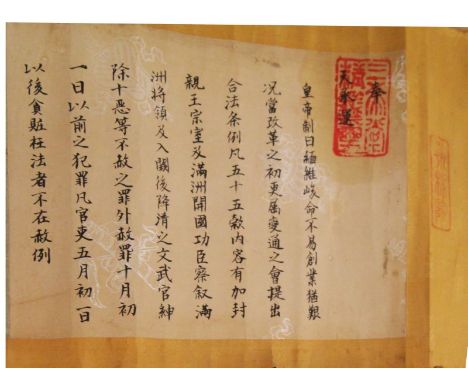 奉
天承運
皇帝制曰緬維峻命不易創業猶艱
況當改革之初更屬變通之會提出
合法条例凡五十五欸内容有加封
親王宗室及滿洲開國功臣察叙滿
洲將領及入關後降淸之文武官紳
除十惡等不赦之罪外赦罪十月初
一日以前之犯罪凡官吏五月初一日
以後貪贓枉法者不在赦例